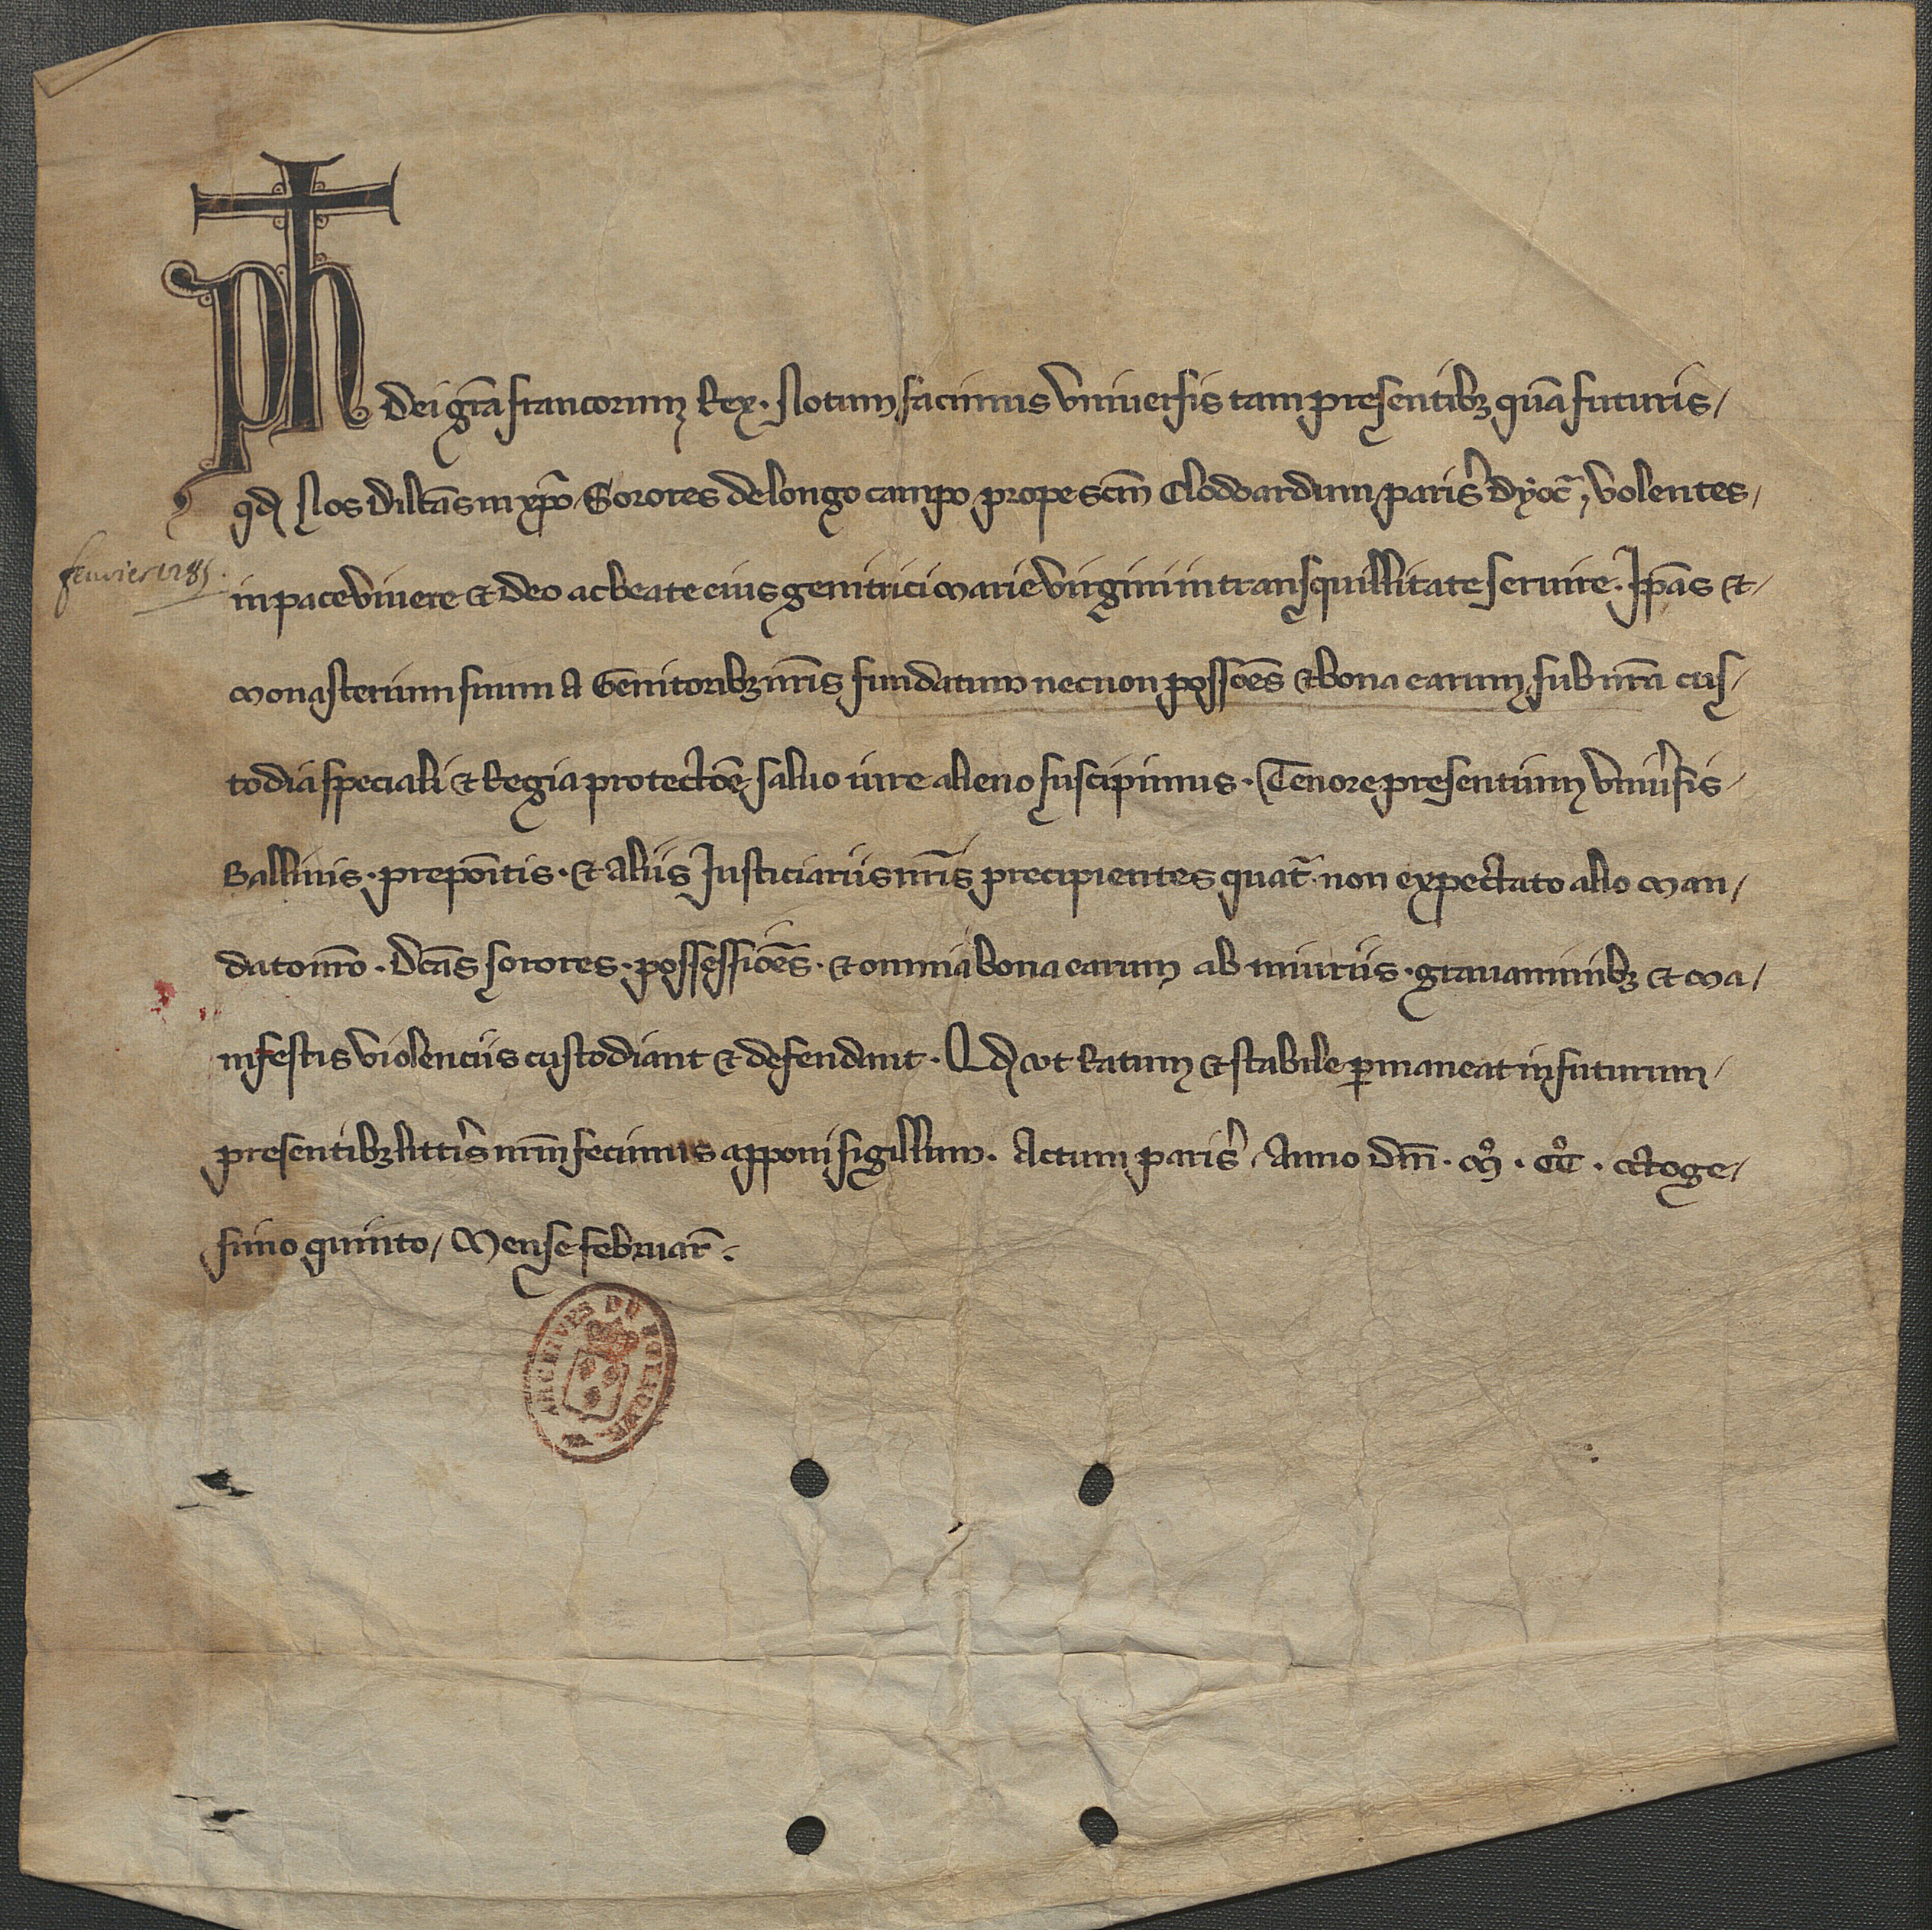 Ph̄ Dei gr̄a francorum Rex. Notum facimus vniuersis tam presentibꝫ qua᷃ futuris/
qd Nos Dilc̄as in xp̄o Sorores de longo campo prope sc̄m Clodoardum paris' dyoc̄, volentes/
in pace viuere et deo ac beate eius genitrici Marie virgini in transquillitate seruire. Ip̄as et/
Monasterium suum A Genitoribꝫ nr̄is fundatum necnon possōes et bona earum sub nr̄a cus/
todia speciali et Regia protectōe saluo iure alieno suscipimus. Tenore presentium vniu'sis/
Balliuis. prepōitis. et Aliis Justiciariis nr̄is precipientes quat̄. non expectato alio Man/
dato nr̄o. Dc̄as sorores. possessiōes. et omnia bona earum ab iniuriis. grauaminibꝫ et Ma/
nifestis violenciis custodiant et defendant. Qd vt Ratum et stabile ꝑmaneat in futurum/
presentibꝫ litt'is nr̄m fecimus apponi sigillum. Actum paris'. Anno dn̄i. Mº. CCº. Octoge/
simo quinto/ Mense februar̄.
feuvier 1285.
ARCHIVES DU ROYAUME